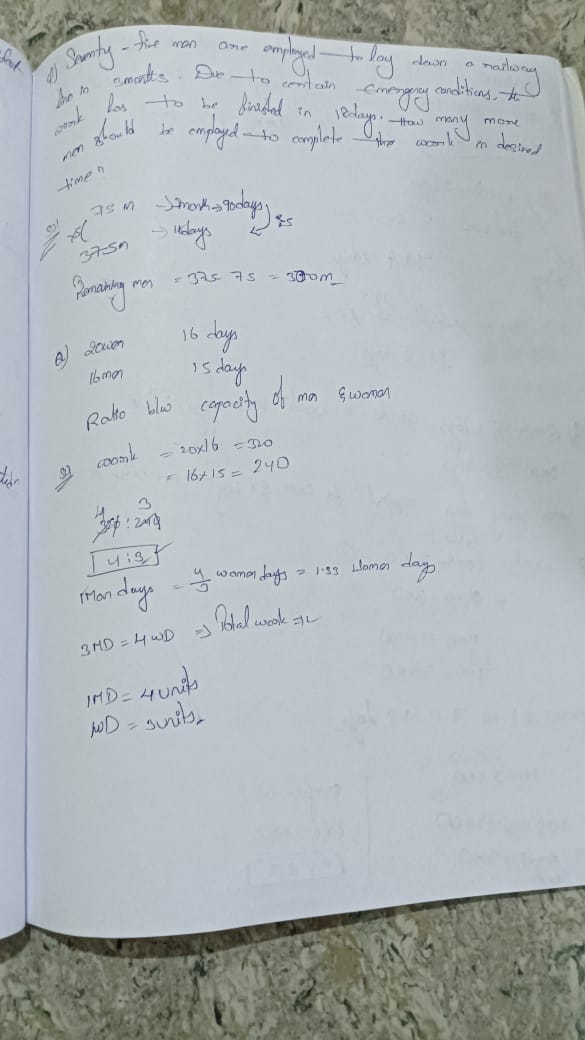 Q) Seventy-five men are employed to lay down a railway
line in 3months. Due to certain emergency conditions, the
work has to be finished in 18days. How many more
men should be employed to complete the work in desired
time?
75 m → 3month → 90days
375m → 18days
Remaining men = 375 75 = 300m
Q) 20women 16 days
16men 15 days
Ratio b/w capacity of men & women
work = 20x16 = 320
= 16x15 = 240
4 3
4:3
Man days = 4/3 women days = 1.33 women days
3MD = 4WD ⇒ Total work = 12
1MD = 4units
WD = 3units